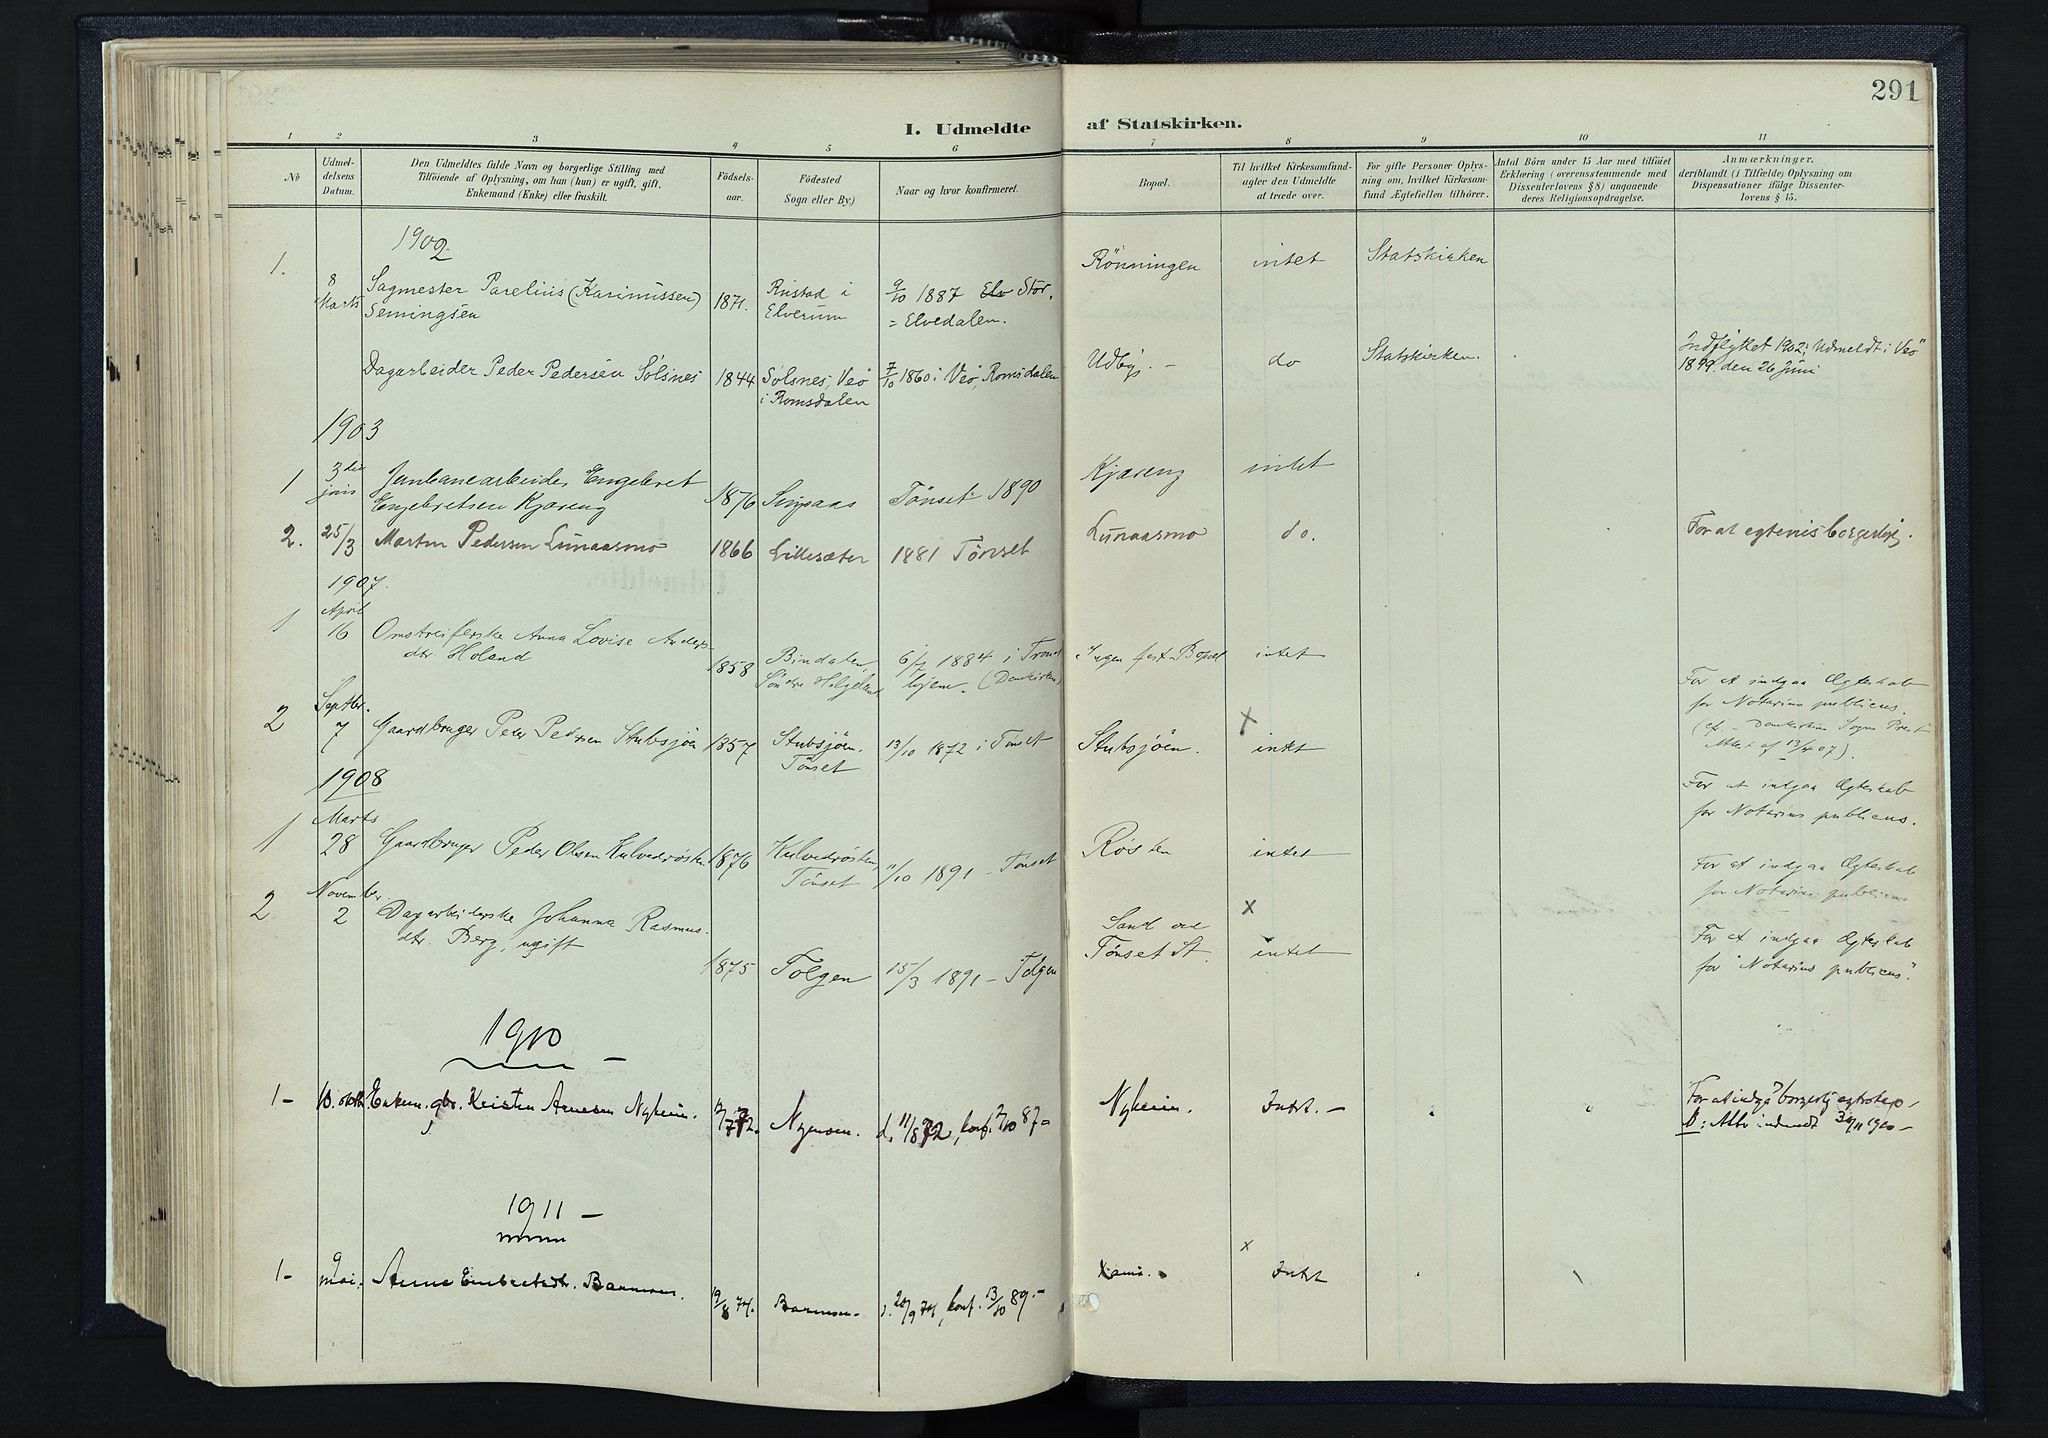 291
I. Udmeldte af Statskirken.
1 2 3 4 5 6 7 8 9 10 11
№
Udmel-
delsens
Datum.
Den Udmeldtes fulde Navn og borgerlige Stilling med
Tilföiende af Oplysning, om han (hun) er ugift, gift,
Enkemand (Enke) eller fraskilt.
Födsels-
aar.
Födested
Sogn eller By.)
Naar og hvor konfirmeret.
Bopæl.
Til hvilket Kirkesamfund
agter den Udmeldte
at træde over.
For gifte Personer Oplys-
ning om, hvilket Kirkesam-
fund Ægtefællen tilhörer.
Antal Börn under 15 Aar med tilföiet
Erklæring (overensstemmende med
Dissenterlovens § 8) angaaende
deres Religionsopdragelse.
Anmærkninger,
deriblandt (i Tilfælde) Oplysning om
Dispensationer ifölge Dissenter-
lovens § 15.
1902
1. 8 Marts Sagmester Parelius (Karinussen) Semingsen 1871. Rustad i Elverum 9/10 1887 Elv Stor. = Elvedalen. Rönningen intet Statskirken
Dagarbeider Peder Pedersen Sølsnes 1844 Sølsnes, Veö i Romsdalen 7/10 1860 i Veö, Romsdalen Udbyg. - do Statskirken. Indflyttet 1902; Udmeldt i Veö 1899 den 26 Juni
1903
1 3die Jernbanearbeider Engebret Engebretsen Kjæreng 1876 Singsaas Tönset 1890 Kjæreng intet
2. 25/3 Marten Pedersen Lunaasmo 1866 Lillesæter 1881 Tönset Lunaasmo do. For at egtevies borgerligt.
1907.
1 April 16 Omstreiferske Anna Lovise Andersdtr. Holand 1858 Bindalen, Söndre Helgeland 6/7 1884 i Trondhjem. (Domkirken) Ingen fast Bopæl intet For at indgaa Ægteskab for Notarius publicus. (cf. - Domkirkens Sogne Prest Attest af 13/4 07).
2 Septbr. 7 Gaardbruger Peder Pedersen Stubsjöen 1857 Stubsjöen. Tönset 13/10 1872 i Tönset Stubsjöen. x intet For at indgaa Ægteskab for Notarius publicus.
1908
1 Marts 28 Gaardbruger Peder Olsen Kulvedrösten 1876 Kulvedrösten, Tönset 11/10 1891 - Tönset Rösten intet For at indgaa Ægteskab for Notarius publicus
2 November. 2 Dagarbeiderske Johanna Rasmusdtr. Berg, ugift 1875 Tolgen 15/3 1891 - Tolgen Sand ved Tönset St. x intet For at indgaa Ægteskab for "Notarius publicus".
1910
1- Enkem. gbr. Kristen Arnesen Nyheim. Nygaarden. konf. 2/10 87 - Nyheim. Intet. - For at indgå borgerlig
NB: Atter indmeldt 30/11 1910 -
1911 -
1- 9 mai. Anne 19/8 74. konf. 13/10 89. - x Intet